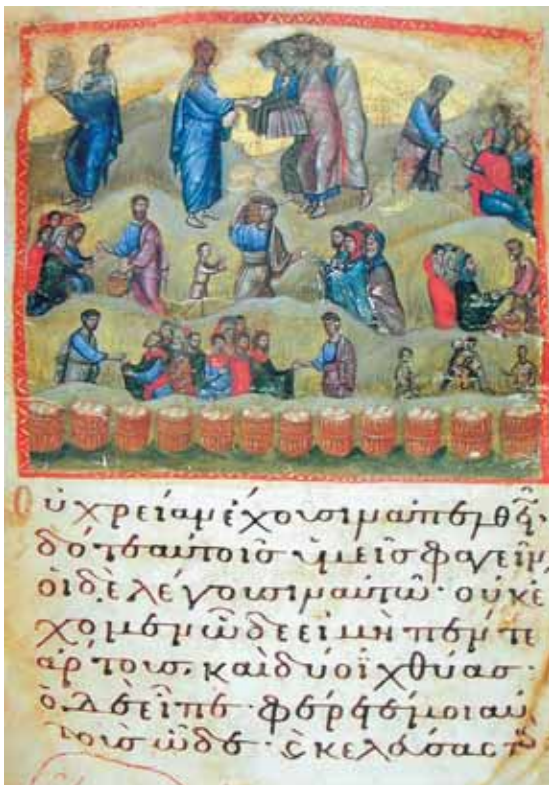 Οὐ χρείαν ἔχουσιν ἀπελθεῖν·
δότε αὐτοῖς ὑμεῖς φαγεῖν,
οἱ δὲ λέγουσιν αὐτῶ· οὐκ ἔ
χομεν ὧδε εἰ μὴ πέντε
ἄρτους, καὶ δύο ἰχθύας·
ὁ δὲ εἶπε· φέρετέ μοι αὐ
τοὺς ὧδε· κελεύσας τοὺς